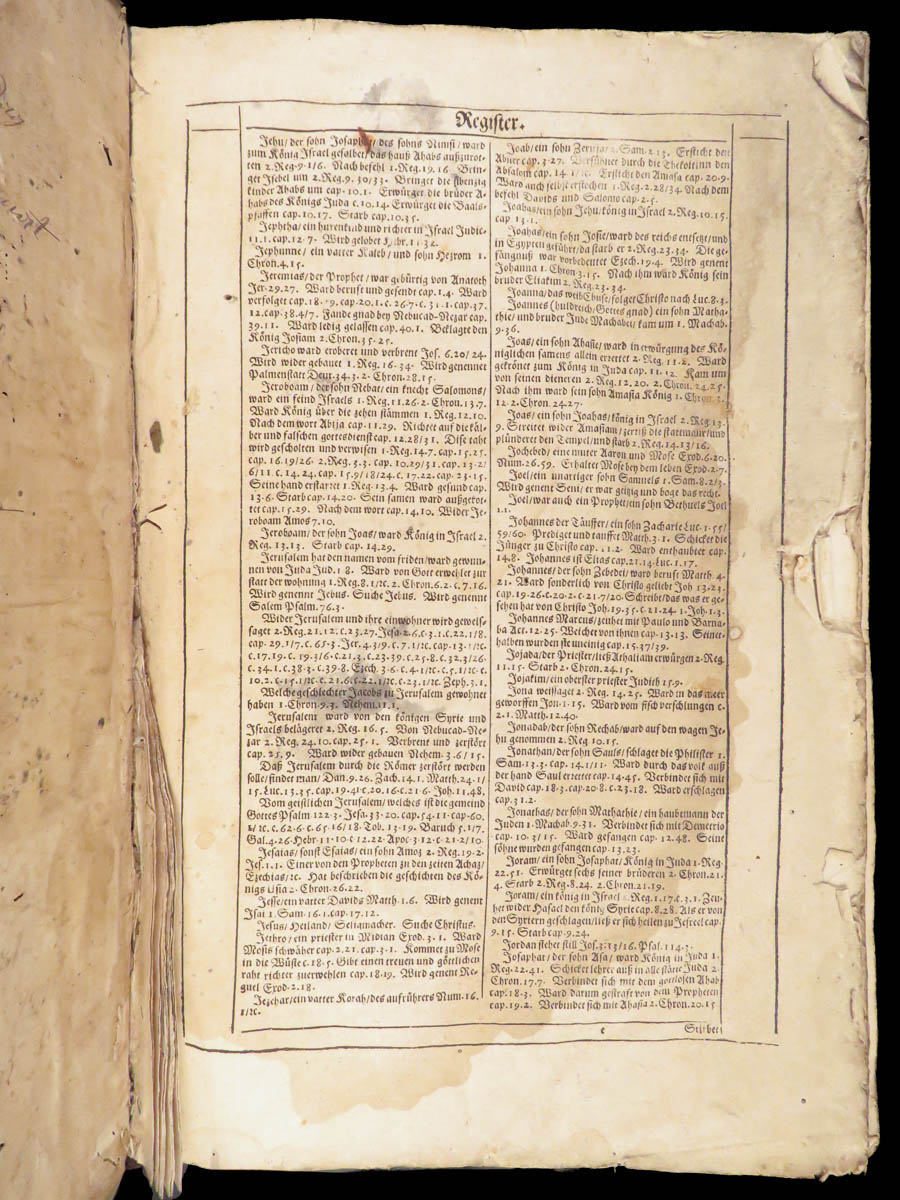 Register.
Jehu/ der sohn Josaphat/ des sohns Nimsi/ ward
zum König Israel gesalbet/ das hauß Ahabs außzurot-
ten 2. Reg. 9. 1/6. Nach befehl 1. Reg. 19. 16. Brin-
get Isebel um 2. Reg. 9. 30/33. Bringet die sibenzig
kinder Ahabs um cap. 10. 1. Erwürget die brüder A-
habs des Königs Juda c. 10. 14. Erwürget die Baals-
pfaffen cap. 10. 17. Starb cap. 10. 35.
Jephtha/ ein hurenkind und richter in Israel Judic.
11. 1. cap. 12. 7. Wird gelobet Hebr. 11. 32.
Jephunne/ ein vatter Kaleb/ und sohn Hezrom 1.
Chron. 4. 15.
Jeremias/ der Prophet/ war gebürtig von Anatoth
Jer. 29. 27. Ward beruft und gesendt cap. 1. 4. Ward
verfolget cap. 18. 19. cap. 20. 1. c. 26. 7. c. 31. 1. cap. 37.
12. cap. 38. 4/7. Fande gnad bey Nebucad-Nezar cap.
39. 11. Ward ledig gelassen cap. 40. 1. Beklaget den
König Josiam 2. Chron. 35. 25.
Jericho ward eroberet und verbrent Jos. 6. 20/24.
Wird wider gebauet 1. Reg. 16. 34. Wird genennet
Palmenstatt Deut. 34. 3. 2. Chron. 28. 15.
Jeroboam/ der sohn Nebat/ ein knecht Salomons/
ward ein feind Israels 1. Reg. 11. 26. 2. Chron. 13. 7.
Ward König über die zehen stämmen 1. Reg. 12. 10.
Nach dem wort Abija cap. 11. 29. Richtet auf die käl-
ber und falschen gottesdienst cap. 12. 28/31. Dise taht
wird gescholten und verwisen 1. Reg. 14. 7. cap. 15. 25.
cap. 16. 19/26. 2. Reg. 3. 3. cap. 10. 29/31. cap. 13. 2/
6/11. c. 14. 24. cap. 15. 9/18/24. c. 17. 22. cap. 23. 15.
Seine hand erstarret 1. Reg. 13. 4. Ward gesund cap.
13. 6. Starb cap. 14. 20. Sein samen ward außgerot-
tet cap. 15. 29. Nach dem wort cap. 14. 10. Wider Je-
roboam Amos 7. 10.
Jeroboam/ der sohn Joas/ ward König in Israel 2.
Reg. 13. 13. Starb cap. 14. 29.
Jerusalem hat den namen vom friden/ ward gewun-
nen von Juda Jud. 1. 8. Ward von Gott erwehlet zur
statt der wohnung 1. Reg. 8. 1/ꝛc. 2. Chron. 6. 2. c. 7. 16.
Wird genennt Jebus. Suche Jebus. Wird genennt
Salem Psalm. 76. 3.
Wider Jerusalem und ihre einwohner wird geweis-
saget 2. Reg. 21. 12. c. 23. 27. Jesa. 2. 6. c. 3. 1. c. 22. 1/8.
cap. 29. 1/7. c. 65. 3. Jer. 4. 3/9. c. 7. 1/ꝛc. cap. 13. 1/ꝛc.
c. 17. 19. c. 19. 3/6. c. 21. 3. c. 23. 39. c. 25. 8. c. 32. 3/26.
c. 34. 1. c. 38. 3. c. 39. 8. Ezech. 3. 6. c. 4. 1/ꝛc. c. 5. 1/ꝛc. c.
10. 2. c. 15. 1/ꝛc. c. 21. 6. c. 22. 1/ꝛc. c. 23. 1/ꝛc. Zeph. 3. 1.
Welche geschlechter Jacobs zu Jerusalem gewohnet
haben 1. Chron. 9. 3. Nehem. 11. 1.
Jerusalem ward von den königen Syrie und
Israels belägeret 2. Reg. 16. 5. Von Nebucad-Ne-
zar 2. Reg. 24. 10. cap. 25. 1. Verbrent und zerstört
cap. 25. 9. Ward wider gebauen Nehem. 3. 6/15.
Daß Jerusalem durch die Römer zerstört werden
solle/ findet man/ Dan. 9. 26. Zach. 14. 1. Matth. 24. 1/
15. Luc. 13. 35. cap. 19. 41. c. 20. 16. c. 21. 6. Joh. 11. 48.
Vom geistlichen Jerusalem/ welches ist die gemeind
Gottes Psalm 122. 3. Jesa. 33. 20. cap. 54. 11. cap. 60.
1/ꝛc. c. 62. 6. c. 65. 16/18. Tob. 13. 19. Baruch 5. 1/7.
Gal. 4. 26. Hebr. 11. 10. c. 12. 22. Apoc. 3. 12. c. 21. 2/10.
Jesaias/ sonst Esaias/ ein sohn Amoz 2. Reg. 19. 2.
Jes. 1. 1. Einer von den Propheten zu den zeiten Achaz/
Ezechias/ꝛc. Hat beschrieben die geschichten des Kö-
nigs Usia 2. Chron. 26. 22.
Jesse/ ein vatter Davids Matth. 1. 6. Wird genent
Isai 1. Sam. 16. 1. cap. 17. 12.
Jesus/ Heiland/ Seligmacher. Suche Christus.
Jethro/ ein priester in Midian Exod. 3. 1. Ward
Mosis schwäher cap. 2. 21. cap. 3. 1. Kommet zu Mose
in die Wüste c. 18. 5. Gibt einen treuen und göttlichen
raht richter zuerwehlen cap. 18. 19. Wird genent Re-
guel Exod. 2. 18.
Jezehar/ ein vatter Korah/ des aufrührers Num. 16.
1/ꝛc.
Joab/ ein sohn Zeruja/ 2. Sam. 2. 13. Ersticht den
Abner cap. 3. 27. Versühnet durch die Thekoitinn den
Absalom cap. 14. 1/ꝛc. Ersticht den Amasa cap. 20. 9.
Ward auch selbst erstochen 1. Reg. 2. 28/34. Nach dem
befehl Davids und Salomo cap. 2. 5.
Joahas/ ein sohn Jehu/ könig in Israel 2. Reg. 10. 15.
cap. 13. 1.
Joahas/ ein sohn Josie/ ward des reichs entsetzt/ und
in Egypten geführt/ da starb er 2. Reg. 23. 34. Die ge-
fängnuß war vorbedeutet Ezech. 19. 4. Wird genent
Johanna 1. Chron. 3. 15. Nach ihm ward König sein
bruder Eliakim 2. Reg. 23. 34.
Joanna/ das weib Chuse/ folget Christo nach Luc. 8. 3.
Joannes (huldreich/ Gottes gnad) ein sohn Matha-
thie/ und bruder Jude Machabei/ kam um 1. Machab.
9. 36.
Joas/ ein sohn Ahasie/ ward in erwürgung des Kö-
niglichen samens allein errettet 2. Reg. 11. 2. Ward
gekrönet zum König in Juda cap. 11. 12. Kam um
von seinen dieneren 2. Reg. 12. 20. 2. Chron. 24. 25.
Nach ihm ward sein sohn Amasia König 1. Chron. 3.
12. 2. Chron. 24. 27.
Joas/ ein sohn Joahas/ könig in Israel 2. Reg. 13.
9. Streitet wider Amasiam/ zerriß die stattmaur/ und
plünderet den Tempel/ und starb 2. Reg. 14. 13/16.
Jochebed/ eine muter Aaron und Mose Exod. 6. 20.
Num. 26. 59. Erhaltet Mose bey dem leben Exod. 2. 7.
Joel/ ein unartiger sohn Samuels 1. Sam. 8. 2/3.
Wird genent Seni/ er war geitzig und boge das recht.
Joel/ war auch ein Prophet/ ein sohn Bethuels Joel
1. 1.
Johannes der Täuffer/ ein sohn Zacharie Luc. 1. 55/
59/60. Prediget und tauffet Matth. 3. 1. Schicket die
Jünger zu Christo cap. 11. 2. Ward enthaubtet cap.
14. 8. Johannes ist Elias cap. 21. 14. Luc. 1. 17.
Johannes/ der sohn Zebedei/ ward beruft Matth. 4.
21. Ward sonderlich von Christo geliebt Joh. 13. 23.
cap. 19. 26. c. 20. 2. c. 21. 7/20. Schreibt/ das was er ge-
sehen hat von Christo Joh. 19. 35. c. 21. 24. 1. Joh. 1. 3.
Johannes Marcus/ zeuhet mit Paulo und Barna-
ba Act. 12. 25. Weichet von ihnen cap. 13. 13. Seinet-
halben wurden sie uneinig cap. 15. 37/39.
Jojada/ der Priester/ ließ Athaliam erwürgen 2. Reg.
11. 15. Starb 2. Chron. 24. 15.
Jojakim/ ein oberster priester Judith 15. 9.
Jona weissaget 2. Reg. 14. 25. Ward in das meer
geworffen Jon. 1. 15. Ward vom fisch verschlungen c.
2. 1. Matth. 12. 40.
Jonadab/ der sohn Rechab/ ward auf den wagen Je-
hu genommen 2. Reg. 10. 15.
Jonathan/ der sohn Sauls/ schlaget die Philister 1.
Sam. 13. 3. cap. 14. 1/11. Ward durch das volk auß
der hand Saul errettet cap. 14. 45. Verbindet sich mit
David cap. 18. 3. cap. 20. 8. c. 23. 18. Ward erschlagen
cap. 31. 2.
Jonathas/ der sohn Mathathie/ ein haubtmann der
Juden 1. Machab. 9. 31. Verbindet sich mit Demetrio
cap. 10. 3/15. Ward gefangen cap. 12. 48. Seine
söhne wurden gefangen cap. 13. 23.
Joram/ ein sohn Josaphat/ König in Juda 1. Reg.
22. 51. Erwürget sechs seiner brüderen 2. Chron. 21.
4. Starb 2. Reg. 8. 24. 2. Chron. 21. 19.
Joram/ ein könig in Israel 2. Reg. 1. 17. c. 3. 1. Zeu-
het wider Hasael den könig Syrie cap. 8. 28. Als er von
den Syrern geschlagen/ ließ er sich heilen zu Jesreel cap.
9. 15. Starb cap. 9. 24.
Jordan stehet still Jos. 3. 13/16. Psal. 114. 3.
Josaphat/ der sohn Asa/ ward König in Juda 1.
Reg. 22. 41. Schicket lehrer auß in alle stätte Juda 2.
Chron. 17. 7. Verbindet sich mit dem gottlosen Ahab
cap. 18. 3. Ward darum gestraft von dem Propheten
cap. 19. 2. Verbindet sich mit Ahasia 2. Chron. 20. 15
c Stirbet